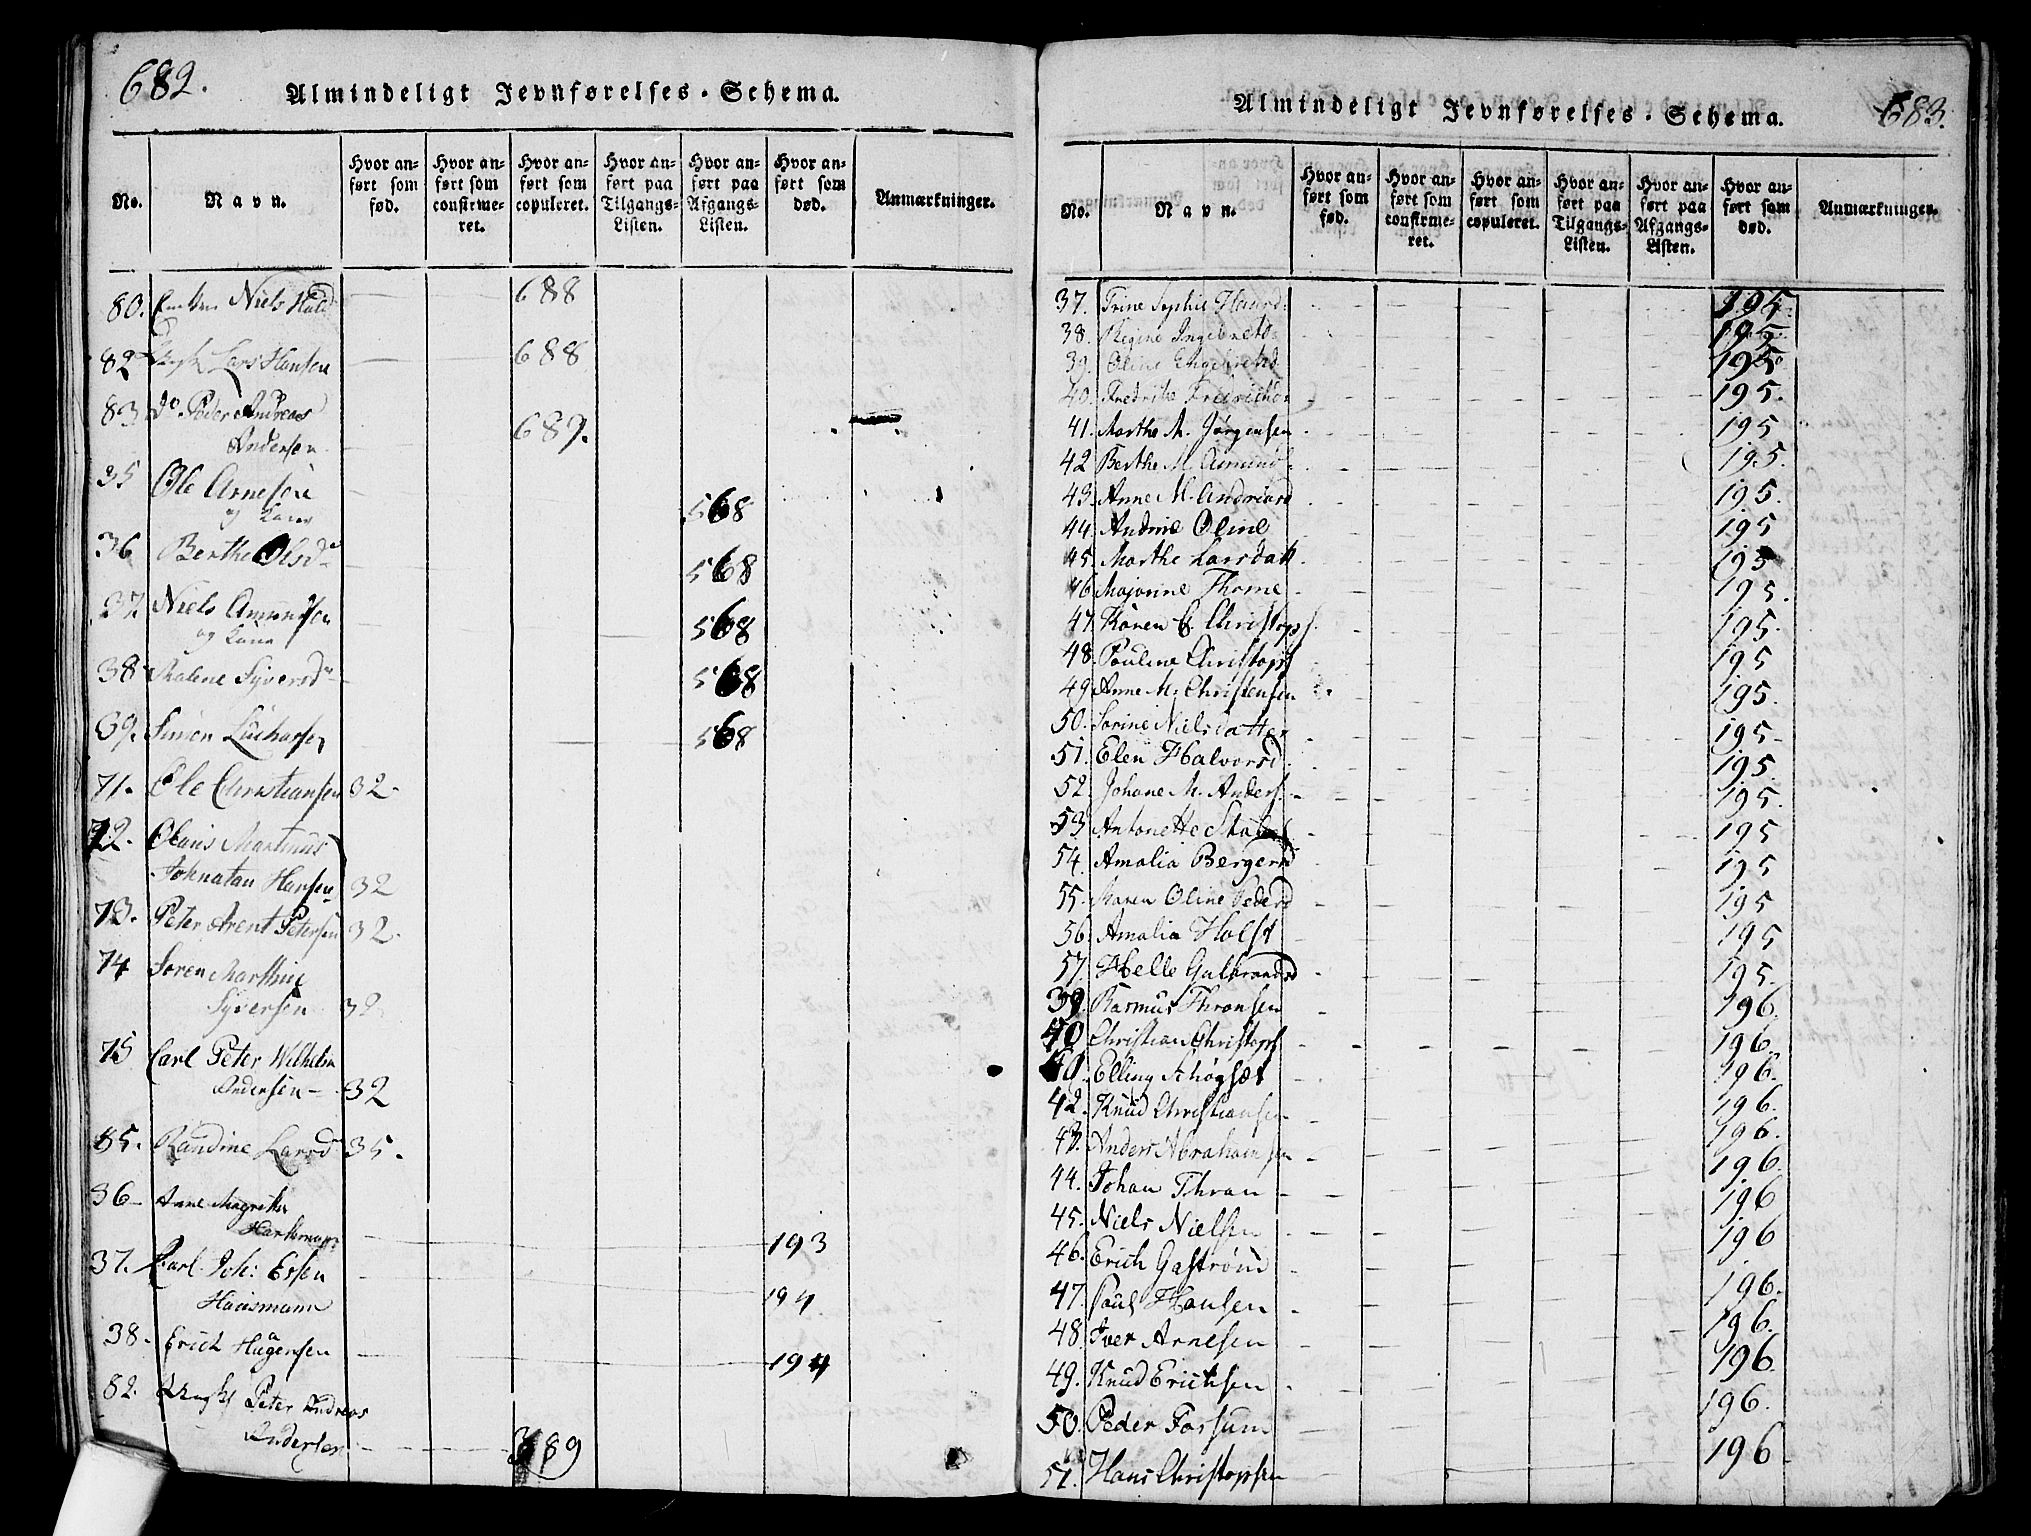 682.
Almindeligt Jevnførelses-Schema.
No.
Navn.
Hvor anført som fød.
Hvor anført som confirmeret.
Hvor anført som copuleret.
Hvor anført paa Tilgangs-Listen.
Hvor anført paa Afgangs-Listen.
Hvor anført som død.
Anmærkninger.
80. Niels 688
82 Lars Hansen 688
83 do. Peder Andreas
Andersen 689.
35 Ole Arnesen
og Kone 568
36 Berthe Olsd 568
37 Niels Amundsen
og Kone 568
38 Malene Syversd 568
39. Simon 568
71. Ole Christiansen 32.
72. Olaus Martinus
Johnatan Hansen 32
73. Peter Arent Petersen 32.
74 Søren Marthin
Syversen 32
75 Carl Peter Wilhelm
Andersen - 32
85. Randine Larsd 35.
36 - Anne Magrethe
193
37. Carl Joh:
194
38. Erich Hagensen 194
82. Peter Andreas
Andersen 689
683.
Almindeligt Jevnførelses-Schema.
No.
Navn.
Hvor anført som fød.
Hvor anført som confirmeret.
Hvor anført som copuleret.
Hvor anført paa Tilgangs-Listen.
Hvor anført paa Afgangs-Listen.
Hvor anført som død.
Anmærkninger.
37. Trine Sophie 195
38. Regine Ingebretd 195
39. Oline Engebretsd 195
40. Fredrike Fredrichd 195.
41. Marthe M. Jørgensen 195
42 Berthe M. Amund 195.
43. Anne M. Andreasd 195.
44. Andrine Oline 195
45. Marthe Larsdatt 195
46 Majorine Thorne 195.
47. Karen C. Christops. 195.
48. Pauline Christops 195
49 Anne M. Christensen 195.
50. Sorine Nielsdatter 195
51. Elen Halvorsd. 195.
52. Johane M. Anders. 195.
53 Antonette 195
54. Amalia Bergersd 195
55. Maren Oline Pedersd 195
56. Amalia Holst 195
57. Helle Gulbrandsd 195.
39. Rasmus Thronsen 196.
40 Christian Christops 196.
Elling 196.
42. Knud Christiansen 196.
43. Anders Abrahamsen 196.
44. Johan Thran 196.
45. Niels Nielsen 196
46. Erich Gastrøm 196
47. Poul Hansen 196.
48. Iver Arnesen 196.
49. Knud Erichsen 196.
50. Peder Forsum 196.
51. Hans Christopsen 196